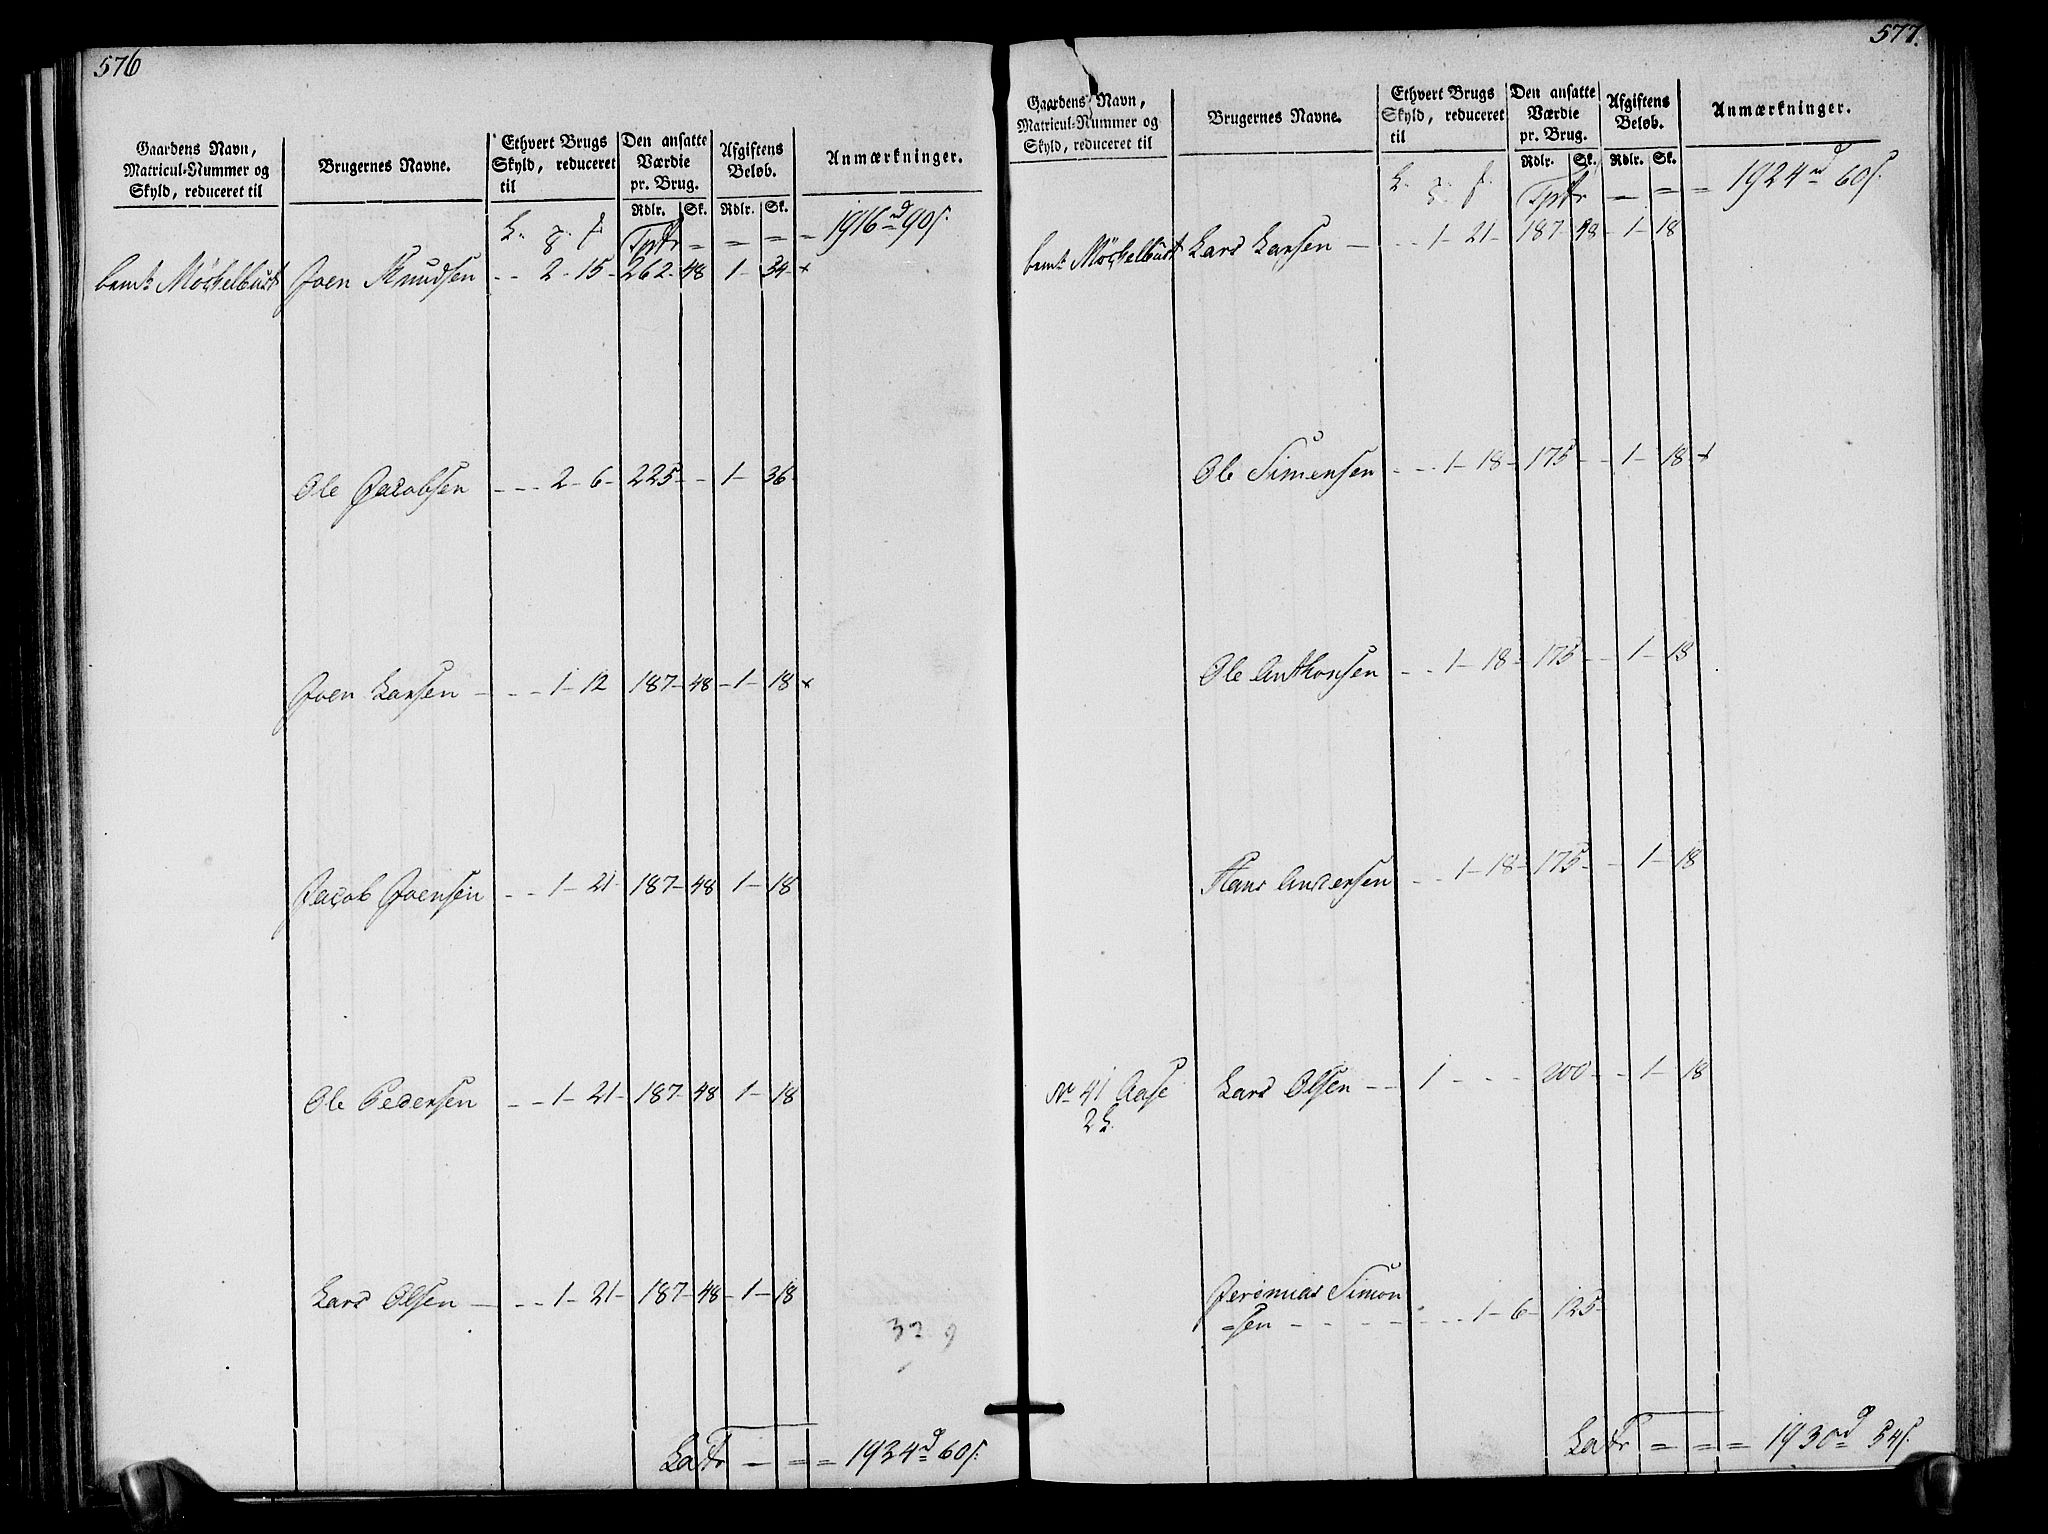 576
Gaardens Navn,
Matricul-Nummer og
Skyld, reduceret til
Brugernes Navne.
Ethvert Brugs
Skyld, reduceret
til
Den ansatte
Værdie
pr. Brug.
Rdlr. Sk.
Afgiftens
Beløb.
Rdlr. Sk.
Anmærkninger.
Tpr = = = = 1916 rd 90 s.
bemt Møckelbust Joen Knudsen - - 2 - 15 - 262 - 48 1 - 34 - x
Ole Jacobsen - - - 2 - 6 - 225 - - 1 - 36 -
Joen Larsen - - - 1 - 12 187 - 48 - 1 - 18 x
Jacob Joensen - - 1 - 21 - 187 - 48 1 - 18
Ole Pedersen - - 1 - 21 - 187 - 48 1 - 18
Lars Olsen - - - 1 - 21 - 187 - 48 - 1 - 18
32 9
Latr - = = 1924 rd 60 s.
577.
Gaardens Navn,
Matricul-Nummer og
Skyld, reduceret til
Brugernes Navne.
Ethvert Brugs
Skyld, reduceret
til
Den ansatte
Værdie
pr. Brug.
Rdlr. Sk.
Afgiftens
Beløb.
Rdlr. Sk.
Anmærkninger.
Tpr - = = 1924 rd 60 s.
bemt Møckelbust Lars Larsen - - - 1 - 21 - 187 - 48 - 1 - 18
Ole Simensen - - - 1 - 18 - 175 - - 1 - 18 x
Ole Anthonsen - - 1 - 18 - 175 - - 1 - 18
Hans Andersen - - 1 - 18 - 175 - - 1 - 18
No 41 Aase Lars Olsen - - 1 - - - 200 - - 1 - 18
2 L.
Jeremias Simon
=sen - - - - - - - 1 - 6 - 125 -
Latr = = = 1930 rd 54 s.